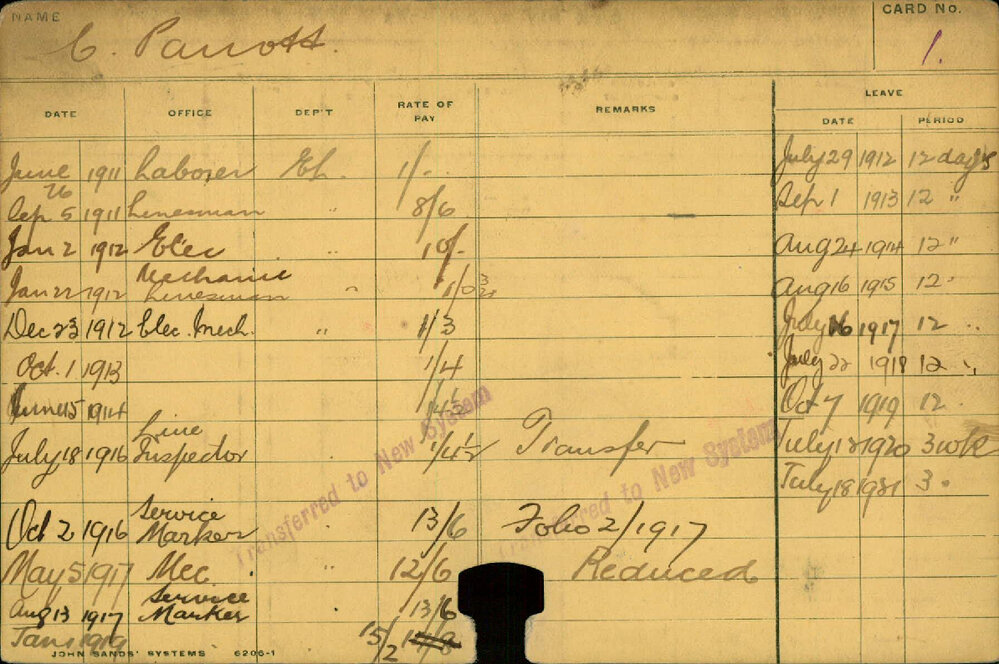 NAME C. Parrott. CARD No. 1.
LEAVE
DATE OFFICE DEP'T RATE OF PAY REMARKS DATE PERIOD
June 1911 Laborer El. 1/-
July 29 1912 12 days
26
Sep 5 1911 Linesman " 8/6
Sep 1 1913 12 "
Jan 2 1912 Elec " 10/-
Aug 24 1914 12 "
Mechanic
Jan 22 1912 Linesman "
Aug 16 1915 12 "
Dec 23 1912 Elec. Mech. " 1/3
July 16 1917 12 "
Oct. 1 1913 1/4
July 22 1918 12 "
June 15 1914 1/4½
Oct 7 1919 12 "
Line
July 18 1916 Inspector 1/4½ Transfer
July 12 1920 3 wks
July 18 1921 3 "
Service
Oct 2 1916 Marker " 13/6 Folio 2/1917
May 5 1917 Mec. " 12/6 Reduced
Service
Aug 13 1917 Marker 13/6
Jan 1 1919 15/2
Transferred to New System
Transferred to New System
JOHN SANDS' SYSTEMS 6206-1